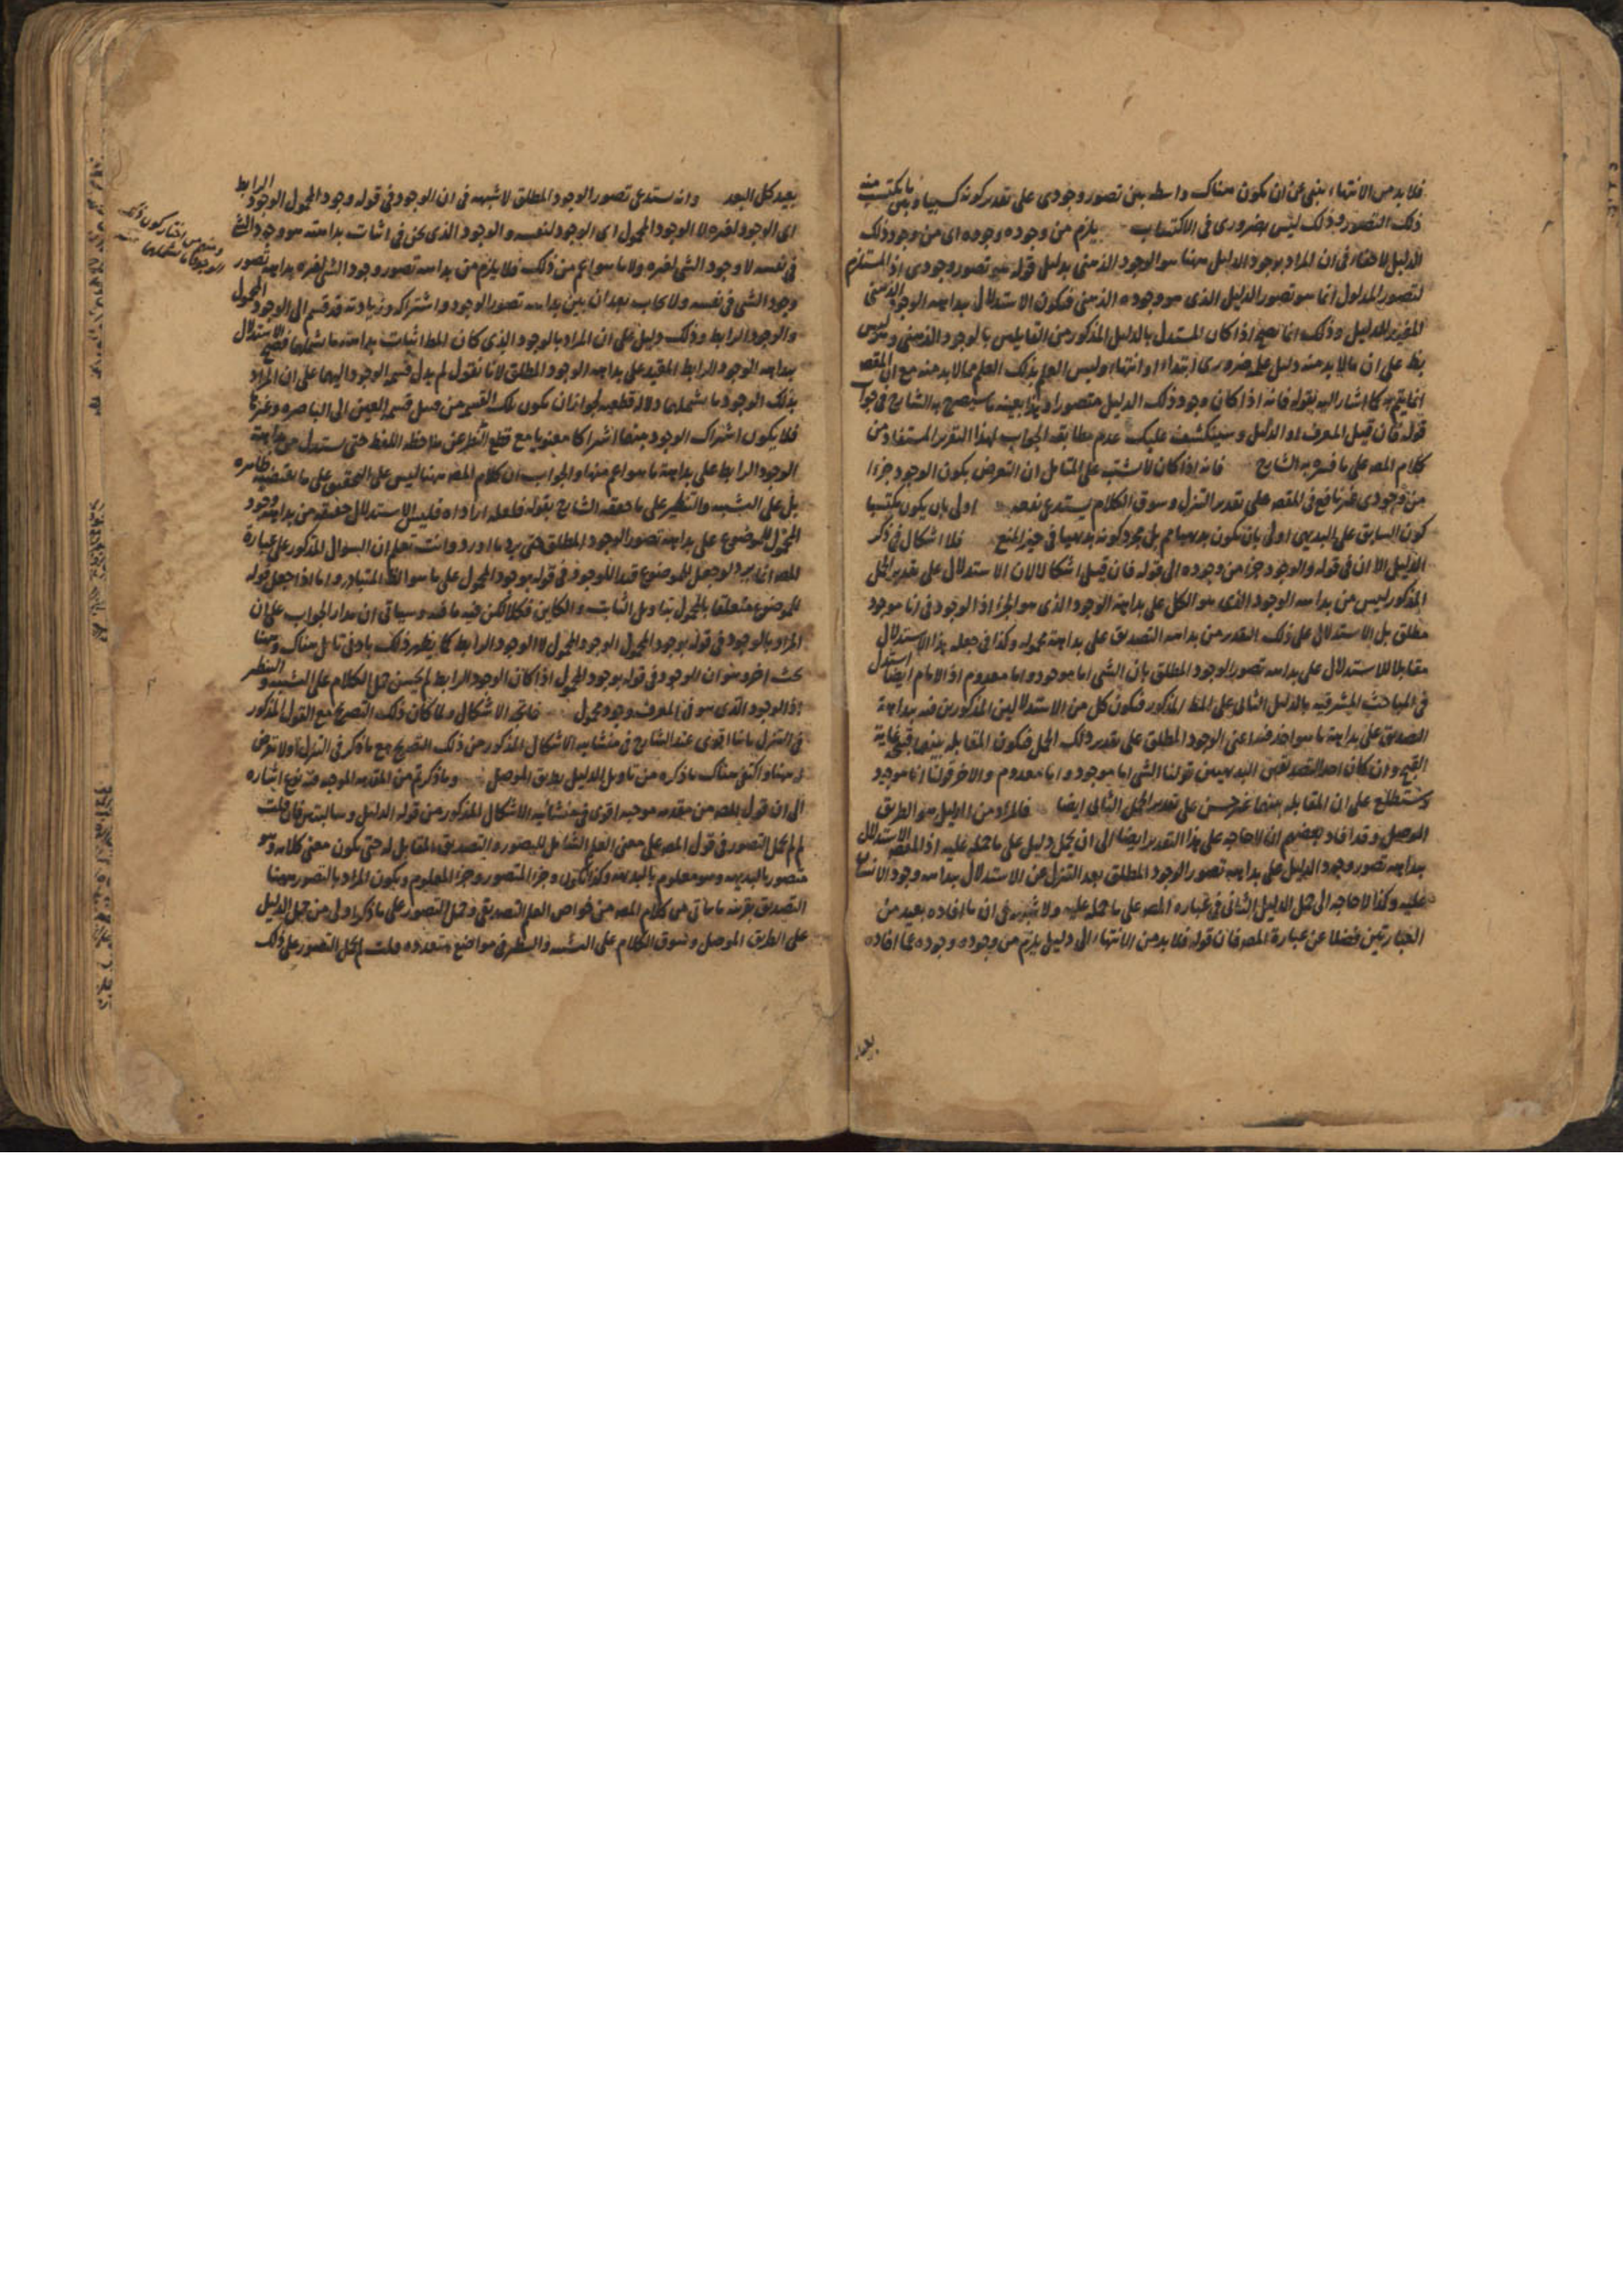 فلا بد من الانتهاء ينبئ عن ان يكون هناك واسطه بين تصور وجودى على تقدير كونه كسبيا وبين ما يكتسب منه
ذلك التصور وذلك ليس بضرورى فى الاكتساب يلزم من وجوده وجوده اى من وجود ذلك
الدليل لا خفاء فى ان المراد بوجود الدليل ههنا هو الوجود الذهنى بدليل قوله تصور وجودى اذ المستلزم
لتصور المدلول انما هو تصور الدليل الذى هو وجوده الذهنى فيكون الاستدلال ببداهه الوجود الذهنى
للغير للدليل وذلك انما يصح اذا كان المستدل بالدليل المذكور من القايلين بالوجود الذهنى وليس
على ان ما لا بد منه دليل علمه ضرورى ابتداء او انتهاء وليس العلم بذلك العلم مما لا بد منه مع ان المقصد
انما يتم كما اشار اليه بقوله فانه اذا كان وجود ذلك الدليل متصورا بعينه ما سيصرح به الشارح فى جواب
قوله فان قيل المعرف او الدليل وسينكشف عليك عدم مطابقه الجواب لهذا التقرير المستفاد من
كلام المصـ على ما فسره به الشارح فانه اذا كان لا شتبه على المتامل ان التعرض بكون الوجود جزءا
من وجودى غير نافع فى المقصد على تقدير التنزل وسوق الكلام يستدعى نفعه اولى بان يكون مكتسبا
كون السابق على البديهى اولى بان يكون بديهيا مم بل مجرد كونه بديهيا فى حيز المنع فلا اشكال فى ذكر
الدليل الا ان فى قوله والوجود جزء من وجوده الى قوله فان قيل اشكالا لان الاستدلال على تقدير الحمل
المذكور ليس من بداهه الوجود الذى هو الكل على بداهة الوجود الذى هو الجزء اذ الوجود فى انا موجود
مطلق بل الاستدلال على ذلك التقدير من بداهه التصديق على بداهة محموله وكذا فى جعله هذا الاستدلال
مقابلا للاستدلال على بداهه تصور الوجود المطلق بان الشى اما موجود واما معدوم اذ الامام ايضا استدل
فى المباحث المشرقيه بالدليل الثانى على النمط المذكور فيكون كل من الاستدلالين المذكورين فيه ببداهة
التصديق على بداهة ما هو اخذ فيه اعنى الوجود المطلق على تقدير ذلك الحمل فيكون المقابله بينهما قبيح غاية
القبح وان كان احد التصديقين البديهيين قولنا الشى اما موجود واما معدوم والاخر قولنا انا موجود
وستطلع على ان المقابله بينهما غير حسن على تقدير الحمل الثانى ايضا فالمراد من الدليل هو الطريق
الموصل وقد افاد بعضهم ان لا حاجه على هذا التقدير ايضا الى ان يحمل دليل على ما حمله عليه اذ المقصد الاستدلال
ببداهه تصور وجود الدليل على بداهه تصور الوجود المطلق بعد التنزل عن الاستدلال ببداهه وجود الانسان
عليه وكذا لا حاجه الى حمل الدليل الثانى فى عباره المصـ على ما حمله عليه ولا شبهه فى ان ما افاده بعيد من
العبارتين فضلا عن عبارة المصـ فان قوله فلا بد من الانتهاء الى دليل يلزم من وجوده وجوده عما افاده
بعيد
بعيد كل البعد وانه يستدعى تصور الوجود المطلق لا شبهه فى ان الوجود فى قوله وجود المحمول الوجود الرابط
اى الوجود لغيره لا الوجود المحمول اى الوجود لنفسه والوجود الذى نحن فى اثبات بداهته هو وجود الشى
فى نفسه لا وجود الشى لغيره ولا ما هو اعم من ذلك فلا يلزم من بداهه تصور وجود الشى لغيره بداهه تصور
وجود الشى فى نفسه ولا يجاب بعد ان بين بداهه تصور الوجود واشتراكه وزيادته قد قسم الى الوجود المحمول
والوجود الرابط وذلك دليل على ان المراد بالوجود الذى كان المط اثبات بداهته ما شملهما فصح الاستدلال
ببداهه الوجود الرابط المقيد على بداهه الوجود المطلق لانا نقول لم يدل قسمه الوجود اليهما على ان المراد
بذلك الوجود ما شملهما دلالة قطعيه لجواز ان يكون تلك القسمه من قبيل قسمه العين الى الباصره وغيرها
فلا يكون اشتراك الوجود بينهما اشتراكا معنويا مع قطع النظر عن ملاحظه اللفظ حتى يستدل من بداهة
الوجود الرابط على بداهة ما هو اعم منهما والجواب ان كلام المصـ ههنا ليس على التحقيق على ما يقتضيه ظاهره
بل على التشبيه والتنظير على ما حققه الشارح بقوله فلعله اراد انه فليس الاستدلال حقيقه من بداهة وجود
المحمول للموضوع على بداهة تصور الوجود المطلق حتى يرد ما اورد وانت تعلم ان السوال المذكور على عبارة
المصـ انما يرد لو جعل للموضوع قيدا للوجود فى قوله بوجود المحمول على ما هو الظ المتبادر واما اذا جعل قوله
للموضوع متعلقا بالمحمول بتاويل الثابت والكاين فكلا لكن فيه ما فيه وسياتى ان مدار الجواب على ان
المراد بالوجود فى قوله بوجود المحمول الوجود المحمول لا الوجود الرابط كما يظهر ذلك بادنى تامل هناك وههنا
بحث اخر وهو ان الوجود فى قوله بوجود المحمول اذا كان الوجود الرابط لم يحسن حمل الكلام على التشبيه والتنظير
اذ الوجود الذى هو فى المعرف وجود محمول فاتجه الاشكال ولما كان ذلك التصريح مع القول المذكور
فى التنزل باشا اقوى عند الشارح فى منشاءيه الاشكال المذكور من ذلك التصريح مع ما ذكر فى التنزل اولا تعرض
له ههنا واكتفى هناك ما ذكره من تاويل الدليل بطريق الموصل وما ذكرتم من المقدمه الموجبه فيه نوع اشاره
الى ان قول المصـ من مقدمه موجبه اقوى فى منشاءيه الاشكال المذكور من قوله الدليل وسالبتين فان قلت
لم لم يحمل التصور فى قول المصـ على معنى العلم الشامل للتصور والتصديق المقابل له حتى يكون معنى كلامه وهو
متصور بالبديهه وهو معلوم بالبديهه وكذا يكون وجزء المتصور وجزء المعلوم ويكون المراد بالتصور ههنا
التصديق بقرينه ما ياتى من كلام المصـ من خواص العلم التصديقى وحمل التصور على ما ذكر اولى من حمل الدليل
على الطريق الموصل وسوق الكلام على التشبيه والتنظير فى مواضع متعدده قلت لم يحمل التصور على ذلك